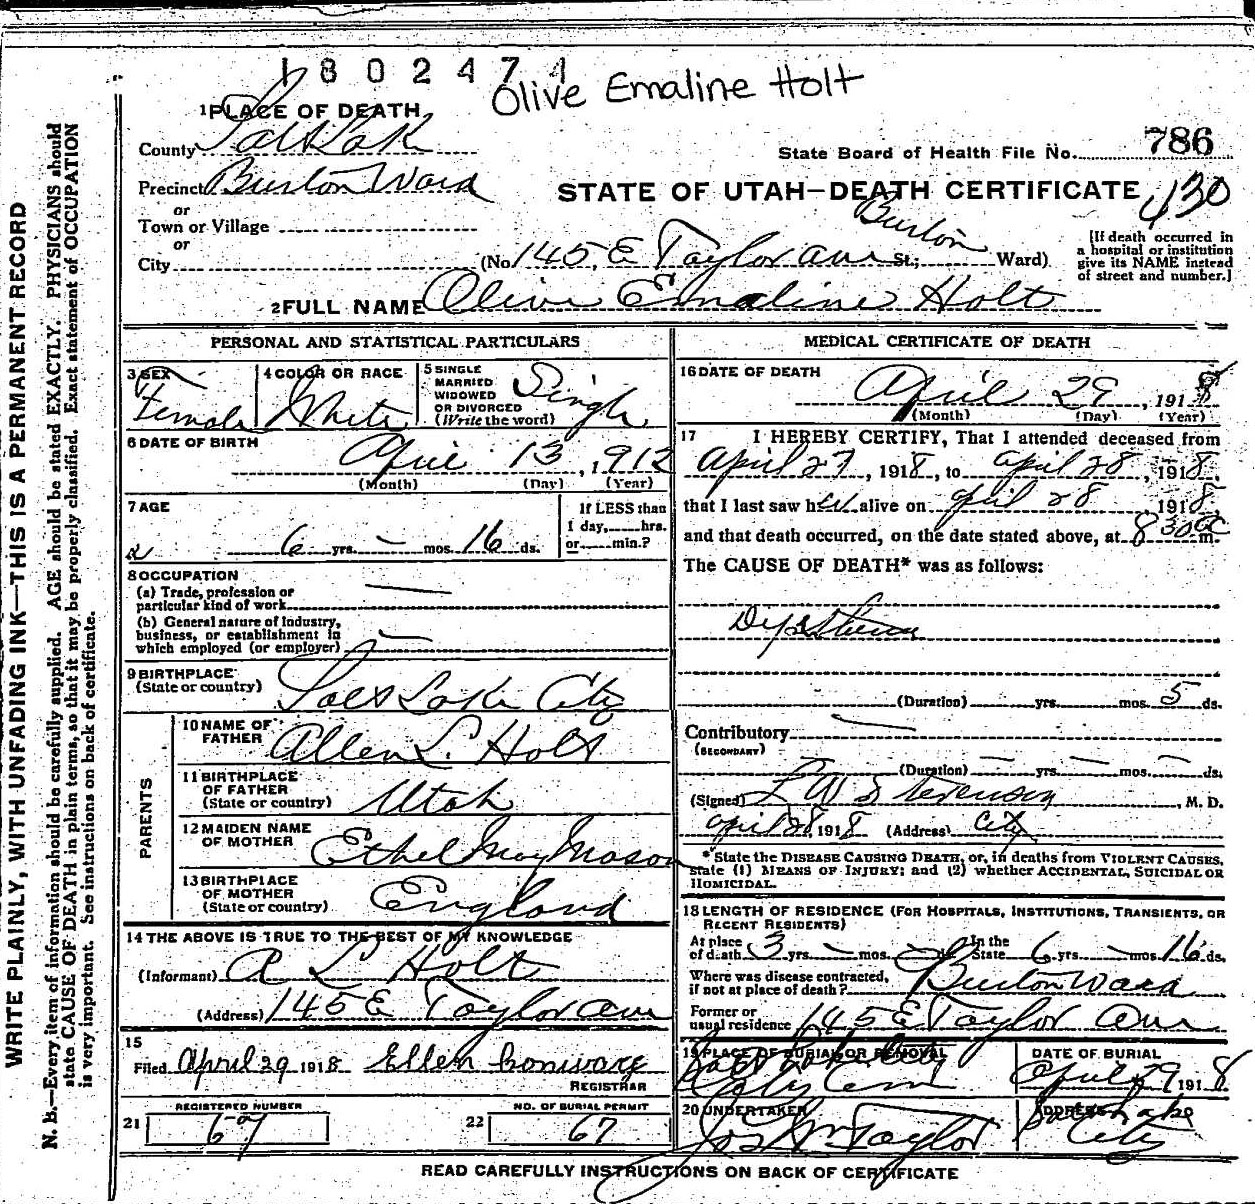 1802474
Olive Emaline Holt
1 PLACE OF DEATH
County Salt Lake
State Board of Health File No. 786
Precinct Burton Ward
STATE OF UTAH—DEATH CERTIFICATE
430
or
Town or Village
or
City (No. 145, E Taylor Ave St.; Burton Ward)
[If death occurred in
a hospital or institution
give its NAME instead
of street and number.]
2 FULL NAME Olive Emaline Holt
PERSONAL AND STATISTICAL PARTICULARS
3 SEX
Female
4 COLOR OR RACE
White
5 SINGLE
MARRIED
WIDOWED
OR DIVORCED
(Write the word)
Single
6 DATE OF BIRTH
April 13, 1912
(Month) (Day) (Year)
7 AGE
6 yrs. — mos. 16 ds.
If LESS than
1 day, hrs.
or min.?
8 OCCUPATION
(a) Trade, profession or
particular kind of work —
(b) General nature of industry,
business, or establishment in
which employed (or employer) —
9 BIRTHPLACE
(State or country) Salt Lake City
PARENTS
10 NAME OF
FATHER Allen L. Holt
11 BIRTHPLACE
OF FATHER
(State or country) Utah
12 MAIDEN NAME
OF MOTHER Ethel May Mason
13 BIRTHPLACE
OF MOTHER
(State or country) England
14 THE ABOVE IS TRUE TO THE BEST OF MY KNOWLEDGE
(Informant) A L Holt
(Address) 145 E Taylor Ave
15
Filed April 29 1918 Ellen
REGISTRAR
REGISTERED NUMBER
21 67
NO. OF BURIAL PERMIT
22 67
MEDICAL CERTIFICATE OF DEATH
16 DATE OF DEATH
April 29, 1918
(Month) (Day) (Year)
17 I HEREBY CERTIFY, That I attended deceased from
April 27, 1918, to April 28, 1918,
that I last saw her alive on April 28 1918
and that death occurred, on the date stated above, at 8 30 a m.
The CAUSE OF DEATH* was as follows:
Dyptheria
(Duration) yrs. mos. 5 ds.
Contributory —
(SECONDARY)
(Duration) — yrs. — mos. — ds.
(Signed) L W Stevenson, M. D.
April 28 1918 (Address) City
*State the DISEASE CAUSING DEATH, or, in deaths from VIOLENT CAUSES,
state (1) MEANS OF INJURY; and (2) whether ACCIDENTAL, SUICIDAL OR
HOMICIDAL.
18 LENGTH OF RESIDENCE (FOR HOSPITALS, INSTITUTIONS, TRANSIENTS, OR
RECENT RESIDENTS)
At place
of death 3 yrs. — mos. — ds. In the
State 6 yrs. — mos. 16 ds.
Where was disease contracted,
if not at place of death? Burton Ward
Former or
usual residence 145 E Taylor Ave
19 PLACE OF BURIAL OR REMOVAL
Salt Lake City
City Cem
DATE OF BURIAL
April 29 1918
20 UNDERTAKER
Jos Wm Taylor
ADDRESS
Salt Lake
City
READ CAREFULLY INSTRUCTIONS ON BACK OF CERTIFICATE
WRITE PLAINLY, WITH UNFADING INK—THIS IS A PERMANENT RECORD
N. B.—Every item of information should be carefully supplied. AGE should be stated EXACTLY. PHYSICIANS should
state CAUSE OF DEATH in plain terms, so that it may be properly classified. Exact statement of OCCUPATION
is very important. See instructions on back of certificate.